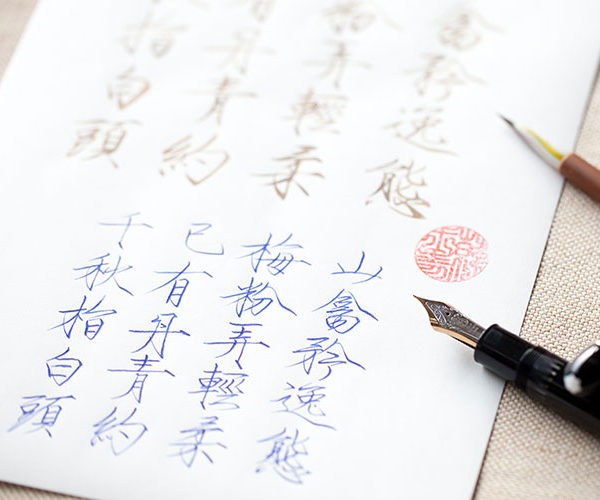 禽矜逸態
粉弄輕柔
有丹青約
指白頭
山禽矜逸態
梅粉弄輕柔
已有丹青約
千秋指白頭